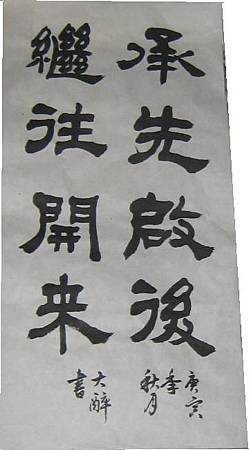 承先啟後
繼往開来
庚寅
季
秋月
大醉
書